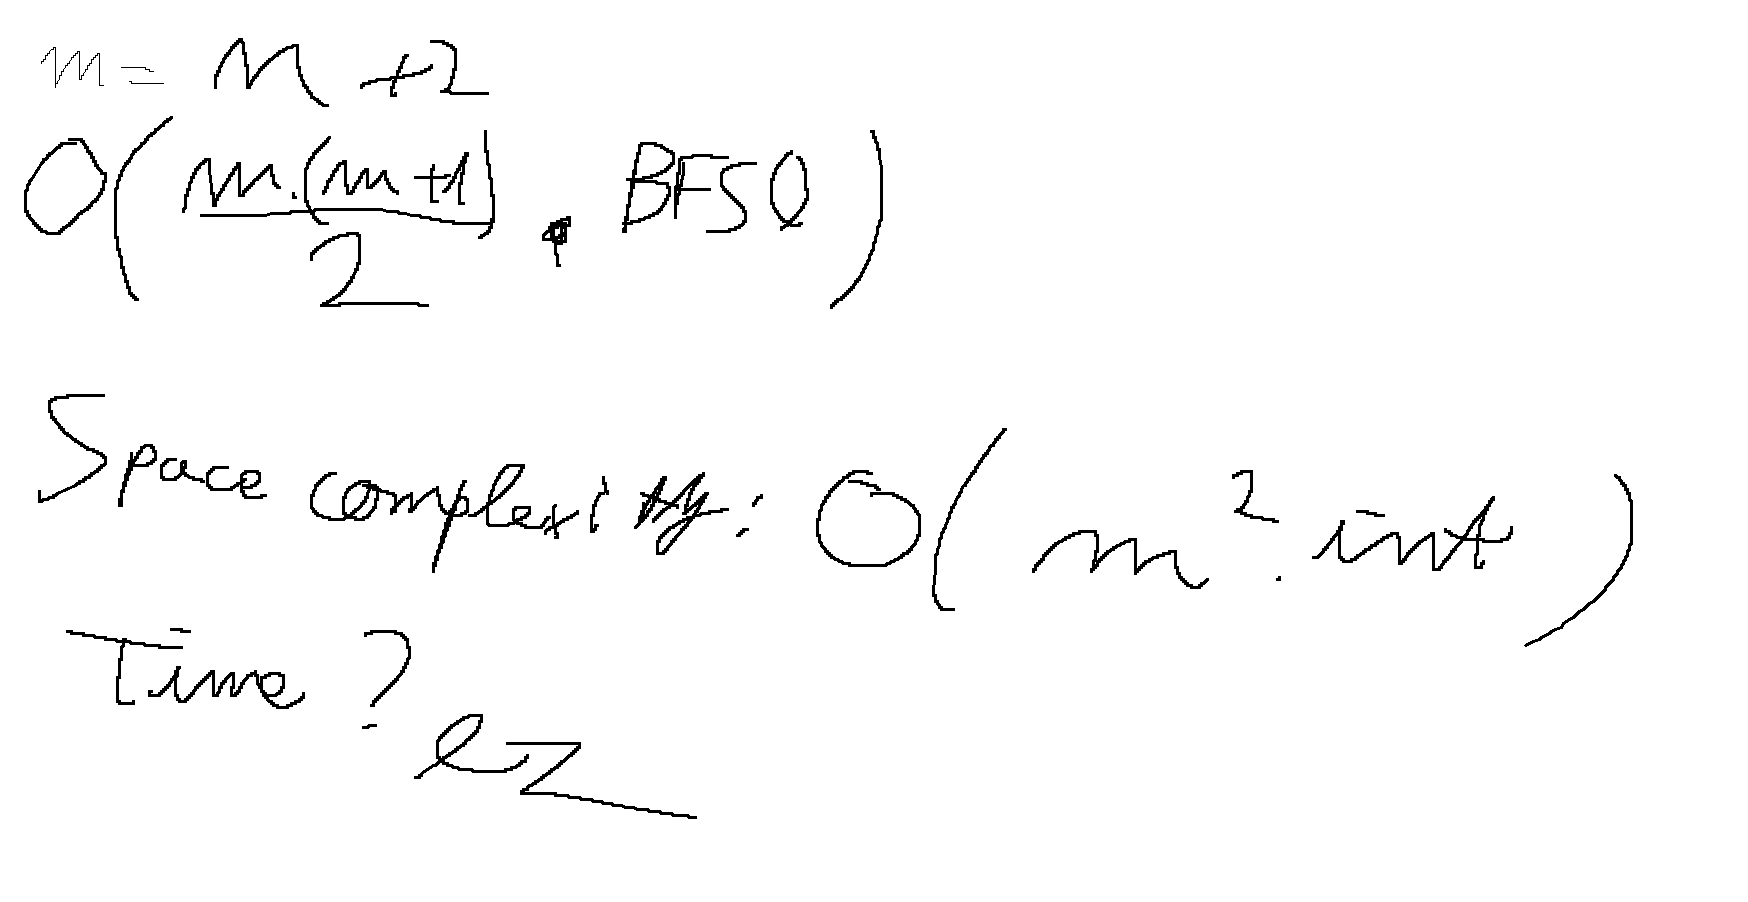 m = n + 2
O( m.(m+1) / 2 . BFS() )
Space complexity: O( m² . int )
Time?
ez